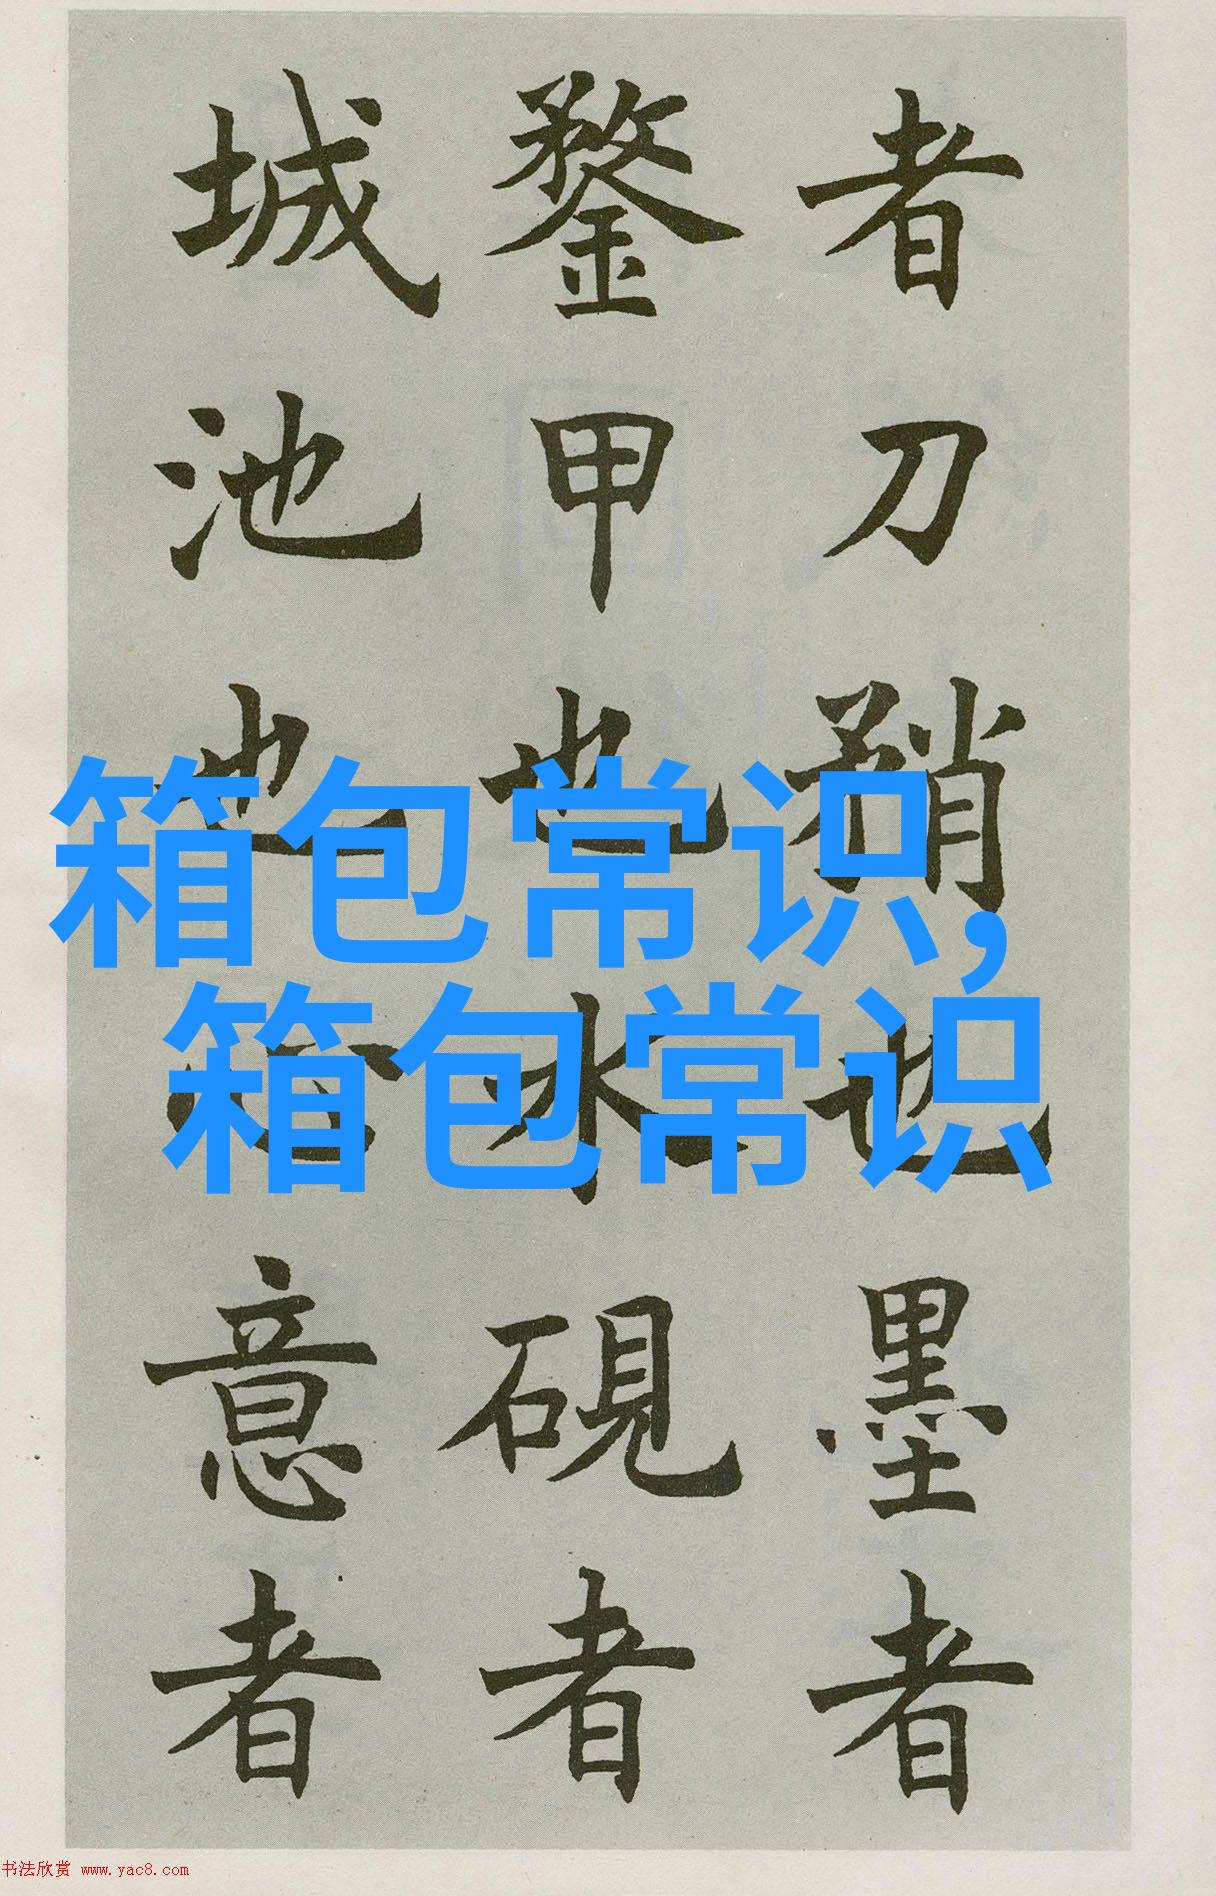 者刀矟也墨者
鍪甲也水硯者
城池也心意者
箱包常识,
箱包常识
书法欣赏 www.yac8.com